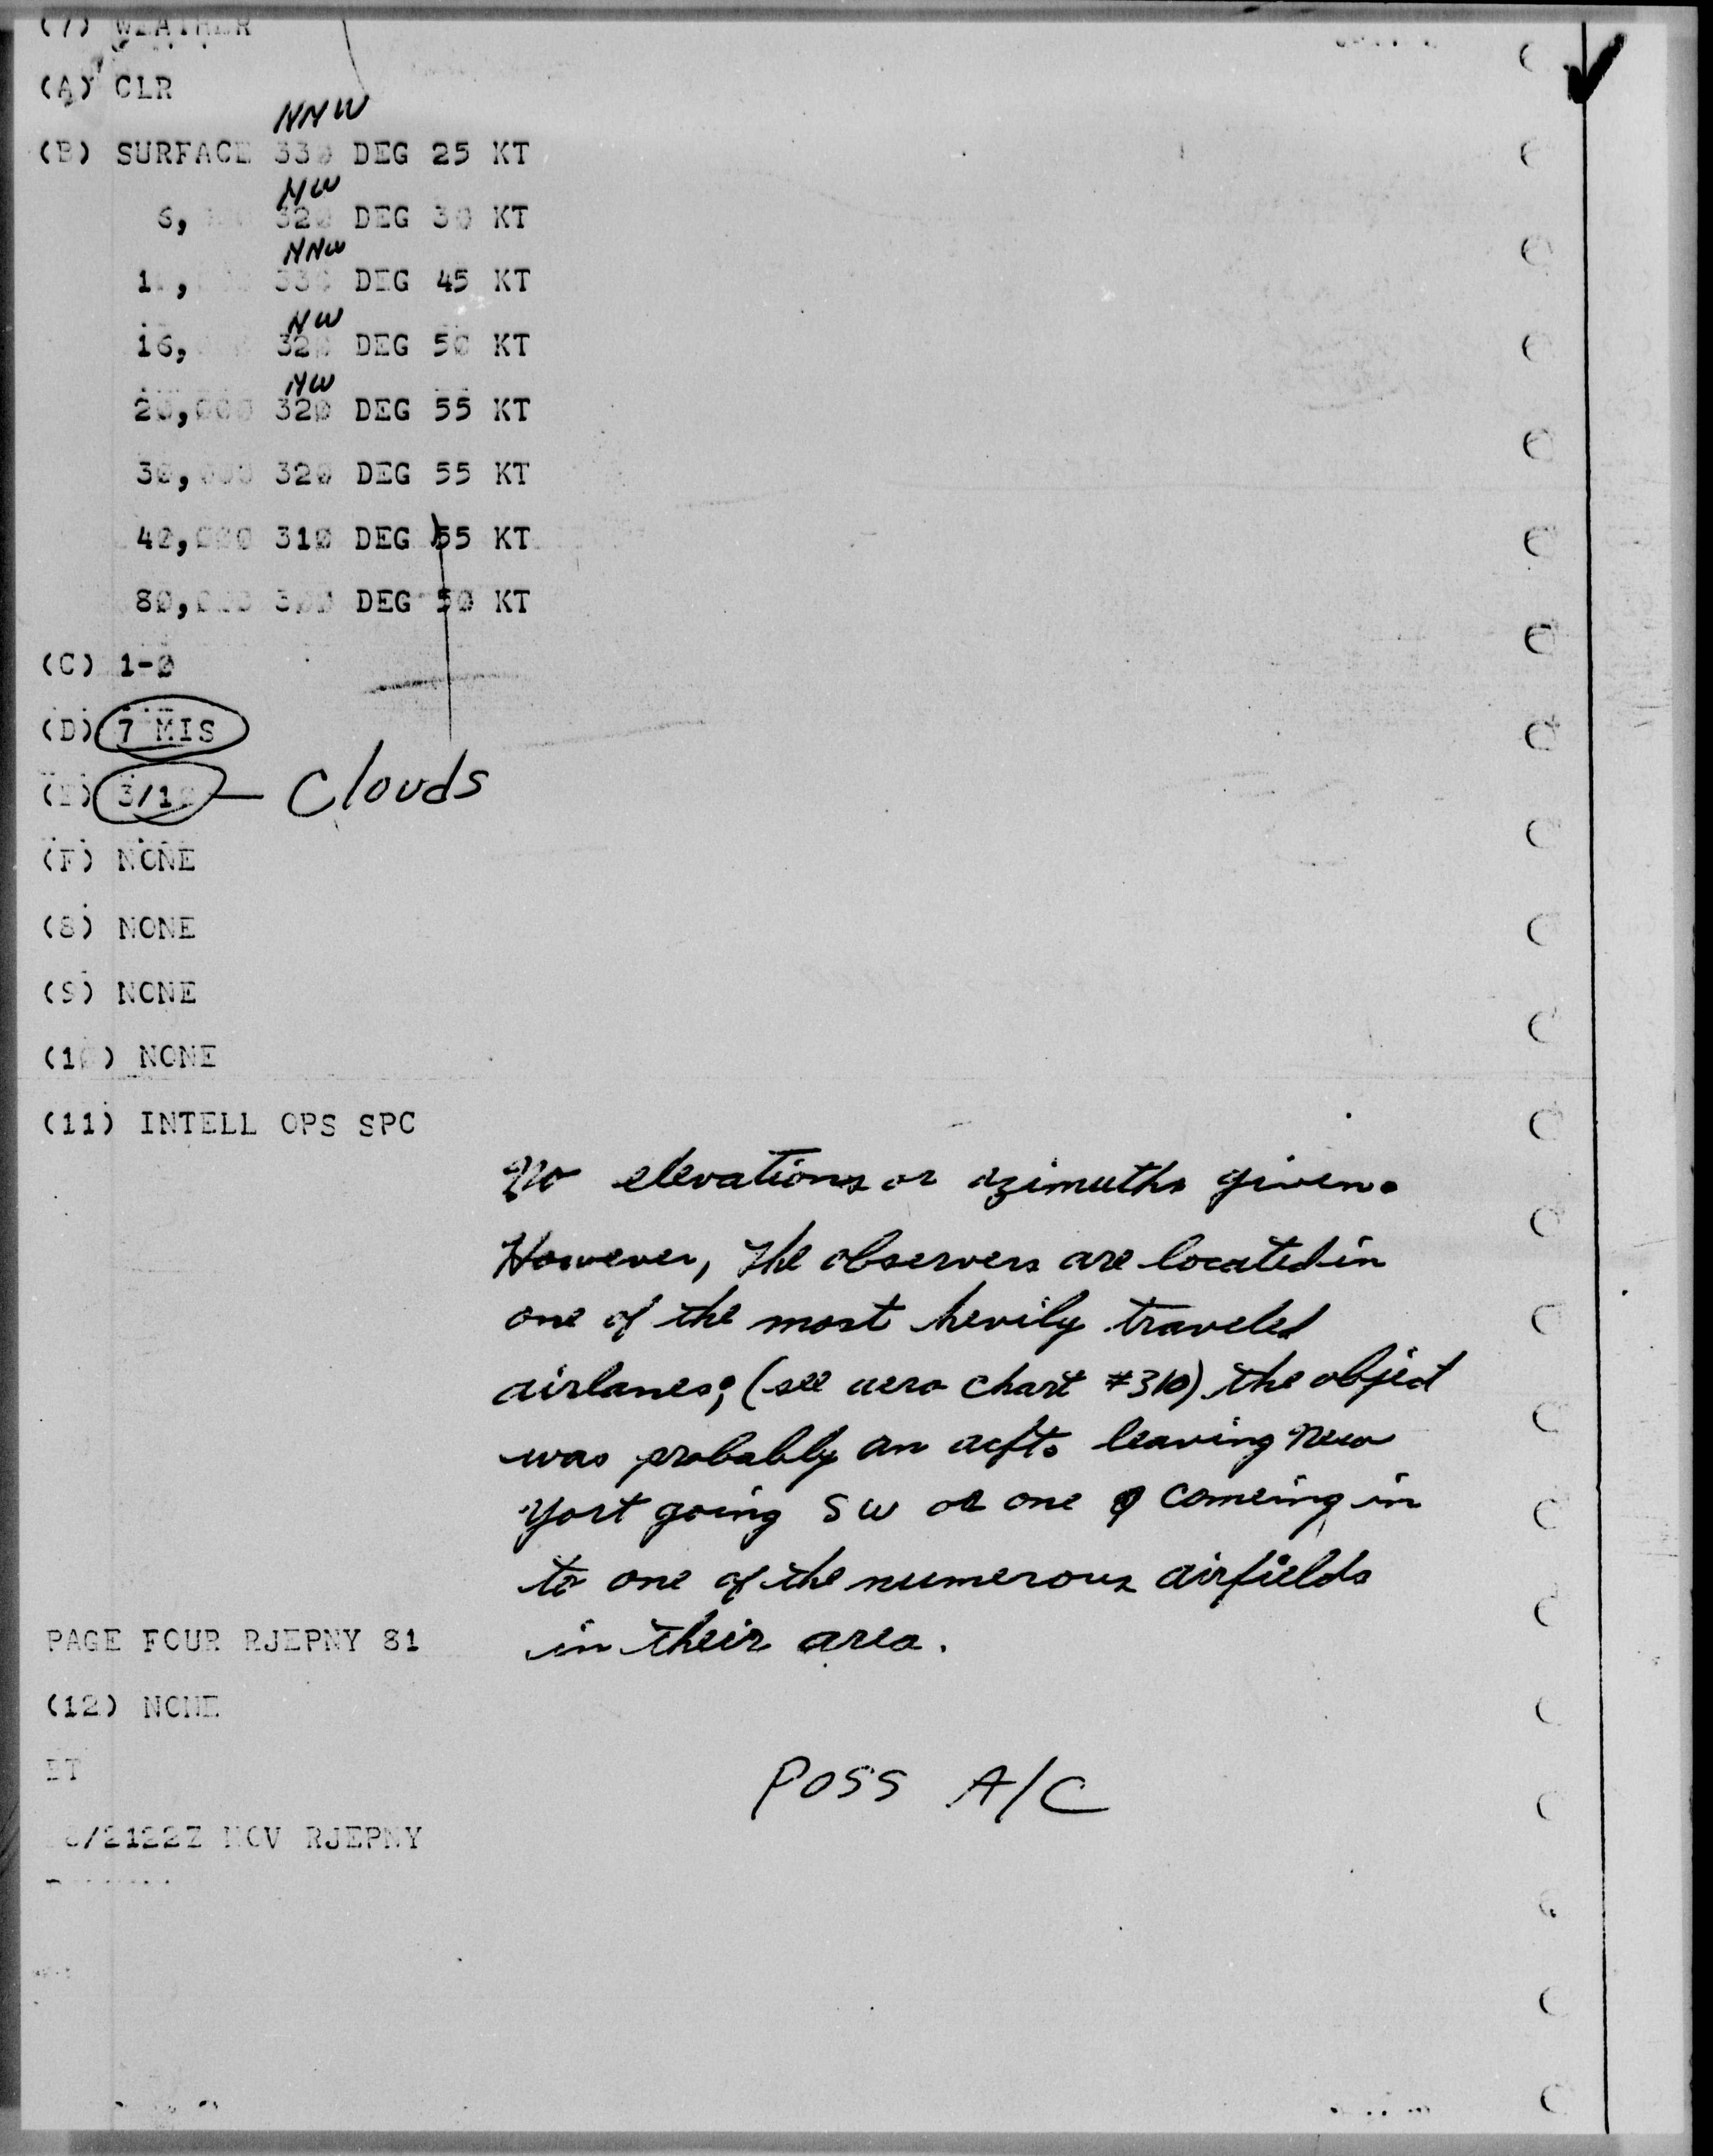 (7) WEATHER
(A) CLR
NNW
(B) SURFACE 330 DEG 25 KT
NW
6, 320 DEG 30 KT
NNW
330 DEG 45 KT
NW
16, 320 DEG 50 KT
NW
20,000 320 DEG 55 KT
30,000 320 DEG 55 KT
42,000 310 DEG 55 KT
80,000 300 DEG 50 KT
(C) 1-0
(D) 7 MIS
(E) 3/10 — Clouds
(F) NONE
(8) NONE
(9) NONE
(10) NONE
(11) INTELL OPS SPC
No elevations or azimuths given.
However, the observers are located in
one of the most hevily traveled
airlanes; (see aero chart #310) the object
was probably an acft. leaving New
York going SW or one comeing in
to one of the numerous airfields
in their area.
PAGE FOUR RJEPNY 81
(12) NONE
BT
/2122Z NOV RJEPNY
POSS A/C